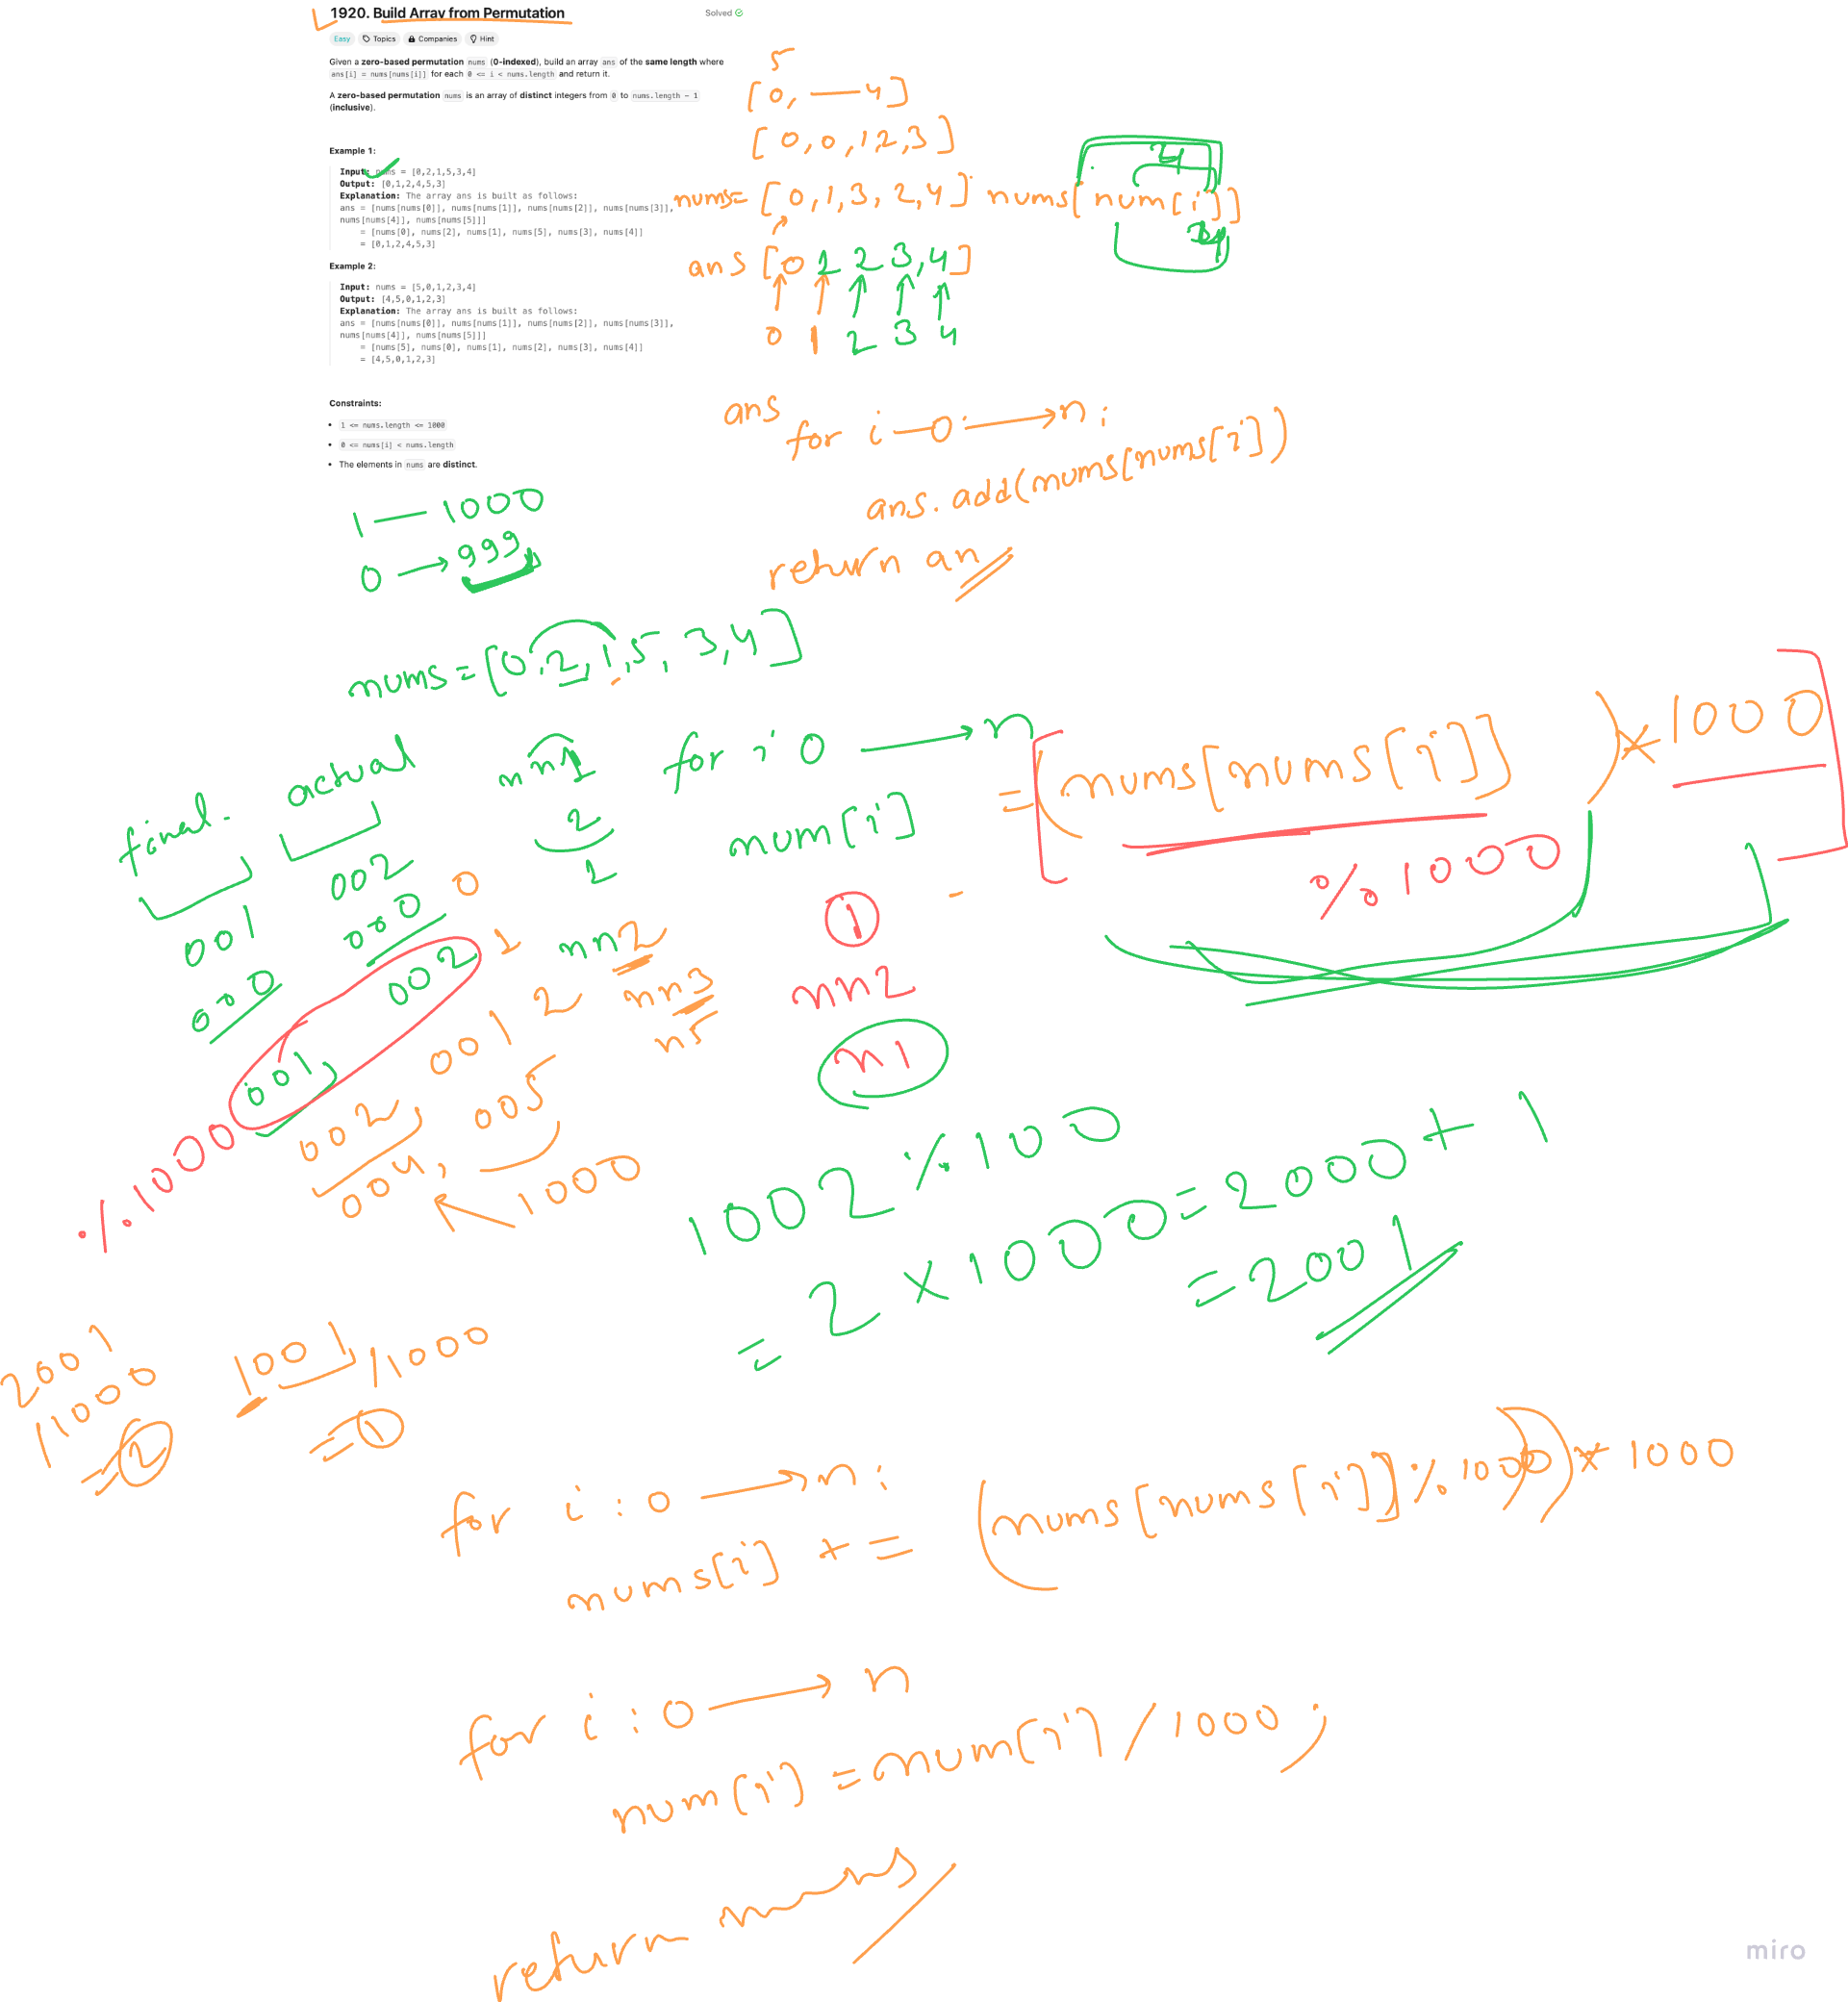 1920. Build Array from Permutation
Solved
Easy Topics Companies Hint
Given a zero-based permutation nums (0-indexed), build an array ans of the same length where
ans[i] = nums[nums[i]] for each 0 <= i < nums.length and return it.
A zero-based permutation nums is an array of distinct integers from 0 to nums.length - 1
(inclusive).
Example 1:
Input: nums = [0,2,1,5,3,4]
Output: [0,1,2,4,5,3]
Explanation: The array ans is built as follows:
ans = [nums[nums[0]], nums[nums[1]], nums[nums[2]], nums[nums[3]],
nums[nums[4]], nums[nums[5]]]
= [nums[0], nums[2], nums[1], nums[5], nums[3], nums[4]]
= [0,1,2,4,5,3]
Example 2:
Input: nums = [5,0,1,2,3,4]
Output: [4,5,0,1,2,3]
Explanation: The array ans is built as follows:
ans = [nums[nums[0]], nums[nums[1]], nums[nums[2]], nums[nums[3]],
nums[nums[4]], nums[nums[5]]]
= [nums[5], nums[0], nums[1], nums[2], nums[3], nums[4]]
= [4,5,0,1,2,3]
Constraints:
1 <= nums.length <= 1000
0 <= nums[i] < nums.length
The elements in nums are distinct.
5
[0, — 4]
[0,0,1,2,3]
nums=[0,1,3,2,4] nums[num[i]]
4
ans [0 1 2 3,4]
0 1 2 3 4
ans
for i — 0 → n:
ans.add(nums[nums[i])
return an
1 — 1000
0 → 999
nums=[0,2,1,5,3,4]
for i 0 → n
num[i]
=(nums[nums[i]])*1000
%1000
final. actual
2
2
001 002
000 000 0
001, 002 1
002, 001 2
004, 005
1000
%1000
nn2
nn3
n5
1
nn2
n1
1002%100
= 2x1000=2000+1
=2001
2001
/1000
=2
1001/1000
=1
for i:0 → n:
nums[i] += (nums[nums[i]]%1000))*1000
for i:0 → n
num[i]=num[i]/1000;
return nums
miro